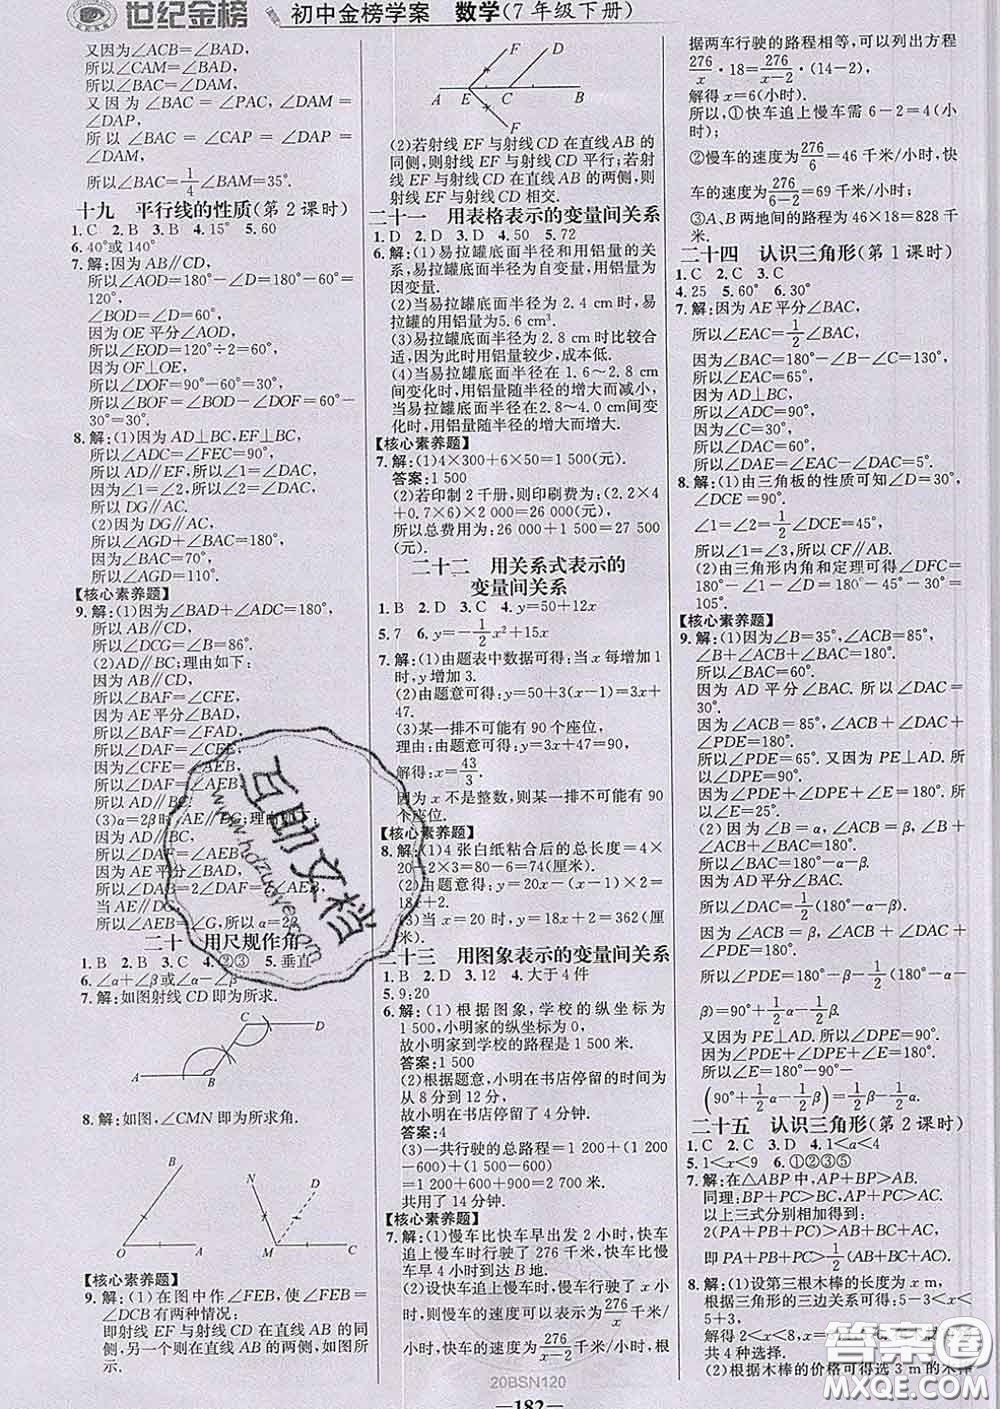 世纪金榜 初中金榜学案 数学(7年级下册)
又因为∠ACB=∠BAD,
所以∠CAM=∠BAD,
所以∠BAC=∠DAM,
又因为∠BAC=∠PAC,∠DAM=
∠DAP,
所以∠BAC=∠CAP=∠DAP=
∠DAM,
所以∠BAC=1/4∠BAM=35°.
十九 平行线的性质(第2课时)
1.C 2.B 3.B 4.15° 5.60
6.40°或140°
7.解:因为AB∥CD,
所以∠AOD=180°-∠D=180°-60°=
120°,
∠BOD=∠D=60°,
因为OE平分∠AOD,
所以∠EOD=120°÷2=60°,
因为OF⊥OE,
所以∠DOF=90°-60°=30°,
所以∠BOF=∠BOD-∠DOF=60°-
30°=30°.
8.解:(1)因为AD⊥BC,EF⊥BC,
所以∠ADC=∠FEC=90°,
所以AD∥EF,所以∠2=∠DAC,
因为∠1=∠2,所以∠1=∠DAC,
所以DG∥AC.
(2)因为DG∥AC,
所以∠AGD+∠BAC=180°,
因为∠BAC=70°,
所以∠AGD=110°.
【核心素养题】
9.解:(1)因为∠BAD+∠ADC=180°,
所以AB∥CD,
所以∠DCG=∠B=86°.
(2)AD∥BC;理由如下:
因为AB∥CD,
所以∠BAF=∠CFE,
因为AE平分∠BAD,
所以∠BAF=∠FAD,
所以∠DAF=∠CFE,
因为∠CFE=∠AEB,
所以∠DAF=∠AEB,
所以AD∥BC;
(3)α=2β时,AE∥DG;理由
因为AD∥BC,
所以∠DAF=∠AEB,
因为AE平分∠BAD,
所以∠DAB=2∠DAF=∠AEB,
当AE∥DG,
所以∠AEB=∠G,所以α=2β
二十 用尺规作角
1.B 2.B 3.C 4.②③ 5.垂直
6.∠α+∠β或∠α-∠β
7.解:如图射线CD即为所求.
C D
A B
8.解:如图,∠CMN即为所求角.
B N D
O A M C
【核心素养题】
9.解:(1)在图中作∠FEB,使∠FEB=
∠DCB有两种情况:
即射线EF与射线CD在直线AB的同
侧,另一个则在直线AB的两侧,如图所
示.
F D
A E C B
F
(2)若射线EF与射线CD在直线AB的
同侧,则射线EF与射线CD平行;若射线
EF与射线CD在直线AB的两侧,则射
线EF与射线CD相交.
二十一 用表格表示的变量间关系
1.D 2.D 3.D 4.50 5.72
6.解:(1)易拉罐底面半径和用铝量的关
系,易拉罐底面半径为自变量,用铝量为
因变量.
(2)当易拉罐底面半径为2.4 cm时,易
拉罐的用铝量为5.6 cm³.
(3)易拉罐底面半径为2.8 cm时比较合
适,因为此时用铝量较少,成本低.
(4)当易拉罐底面半径在1.6~2.8 cm
间变化时,用铝量随半径的增大而减小,
当易拉罐底面半径在2.8~4.0 cm间变
化时,用铝量随半径的增大而增大.
【核心素养题】
7.解:(1)4×300+6×50=1 500(元).
答案:1 500
(2)若印制2千册,则印刷费为:(2.2×4
+0.7×6)×2 000=26 000(元),
所以总费用为:26 000+1 500=27 500
(元).
二十二 用关系式表示的
变量间关系
1.B 2.D 3.C 4.y=50+12x
5.7 6.y=-1/2x²+15x
7.解:(1)由题表中数据可得:当x每增加1
时,y增加3.
(2)由题意可得:y=50+3(x-1)=3x+
47.
(3)某一排不可能有90个座位,
理由:由题意可得:y=3x+47=90,
解得:x=43/3.
因为x不是整数,则某一排不可能有90
个座位.
【核心素养题】
8.解:(1)4张白纸粘合后的总长度=4×
20-2×3=80-6=74(厘米).
(2)由题意得:y=20x-(x-1)×2=
18x+2.
(3)当x=20时,y=18x+2=362(厘
米).
二十三 用图象表示的变量间关系
1.B 2.D 3.12 4.大于4件
5.9:20
6.解:(1)根据图象,学校的纵坐标为
1 500,小明家的纵坐标为0,
故小明家到学校的路程是1 500米.
答案:1 500
(2)根据题意,小明在书店停留的时间为
从8分到12分,
故小明在书店停留了4分钟.
答案:4
(3)一共行驶的总路程=1 200+(1 200
-600)+(1 500-600)
=1 200+600+900=2 700米;
共用了14分钟.
【核心素养题】
7.解:(1)慢车比快车早出发2小时,快车
追上慢车时行驶了276千米,快车比慢
车早4小时到达B地.
(2)设快车追上慢车时,慢车行驶了x小
时,则慢车的速度可以表示为276/x千米/
小时,快车的速度为276/(x-2)千米/小时,根
据两车行驶的路程相等,可以列出方程
276/x·18=276/(x-2)·(14-2),
解得x=6(小时).
所以,①快车追上慢车需6-2=4(小
时);
②慢车的速度为276/6=46千米/小时,快
车的速度为276/(6-2)=69千米/小时;
③A、B两地间的路程为46×18=828千
米.
二十四 认识三角形(第1课时)
1.C 2.C 3.C
4.25 5.60° 6.30°
7.解:因为AE平分∠BAC,
所以∠EAC=1/2∠BAC,
因为∠BAC=180°-∠B-∠C=90°,
所以∠EAC=45°.
因为AD⊥BC,
所以∠ADC=90°,
所以∠DAC=50°,
所以∠DAE=∠EAC-∠DAC=5°.
8.解:(1)由三角板的性质可知∠D=30°,
∠DCE=90°.
∠1=∠2=1/2∠DCE=45°,
所以∠1=∠3,所以CF∥AB.
(2)由三角形内角和定理可得∠DFC=
180°-∠1-∠D=180°-45°-30°=
105°.
【核心素养题】
9.解:(1)因为∠B=35°,∠ACB=85°,
∠B+∠ACB+∠BAC=180°,
所以∠BAC=60°.
因为AD平分∠BAC,所以∠DAC=30°.
因为∠ACB=85°,∠ACB+∠DAC+
∠PDE=180°,
所以∠PDE=65°.又因为PE⊥AD.所
以∠DPE=90°,
因为∠PDE+∠DPE+∠E=180°,所以
∠E=25°.
(2)因为∠B=α,∠ACB=β,∠B+
∠ACB+∠BAC=180°,
所以∠BAC=180°-α-β.因为AD平分
∠BAC,
所以∠DAC=1/2∠BAC=1/2(180°-α-
β).因为∠ACB=β,∠ACB+∠DAC+
∠PDE=180°,
所以∠PDE=180°-β-1/2(180°-α-
β)=90°+1/2α-1/2β.
又因为PE⊥AD.所以∠DPE=90°.
因为∠PDE+∠DPE+∠E=180°.
所以∠E=180°-90°-
(90°+1/2α-1/2β)=1/2β-1/2α.
二十五 认识三角形(第2课时)
1.C 2.C 3.D 4.1<a<4
5.1<x<9 6.①②③⑤
7.解:在△ABP中,AP+BP>AB.
同理:BP+PC>BC,AP+PC>AC.
以上三式分别相加得到:
2(PA+PB+PC)>AB+BC+AC,
即PA+PB+PC>1/2(AB+BC+AC).
8.解:(1)设第三根木棒的长度为x m,
根据三角形的三边关系可得:5-3<x<
5+3,
解得2<x<8,x=
共4种选择.
(2)根据木棒的价格可得选3 m的木
20BSN120
—182—
百助文档
www.hdzuoyewen.com
答案圈
MXQE.COM